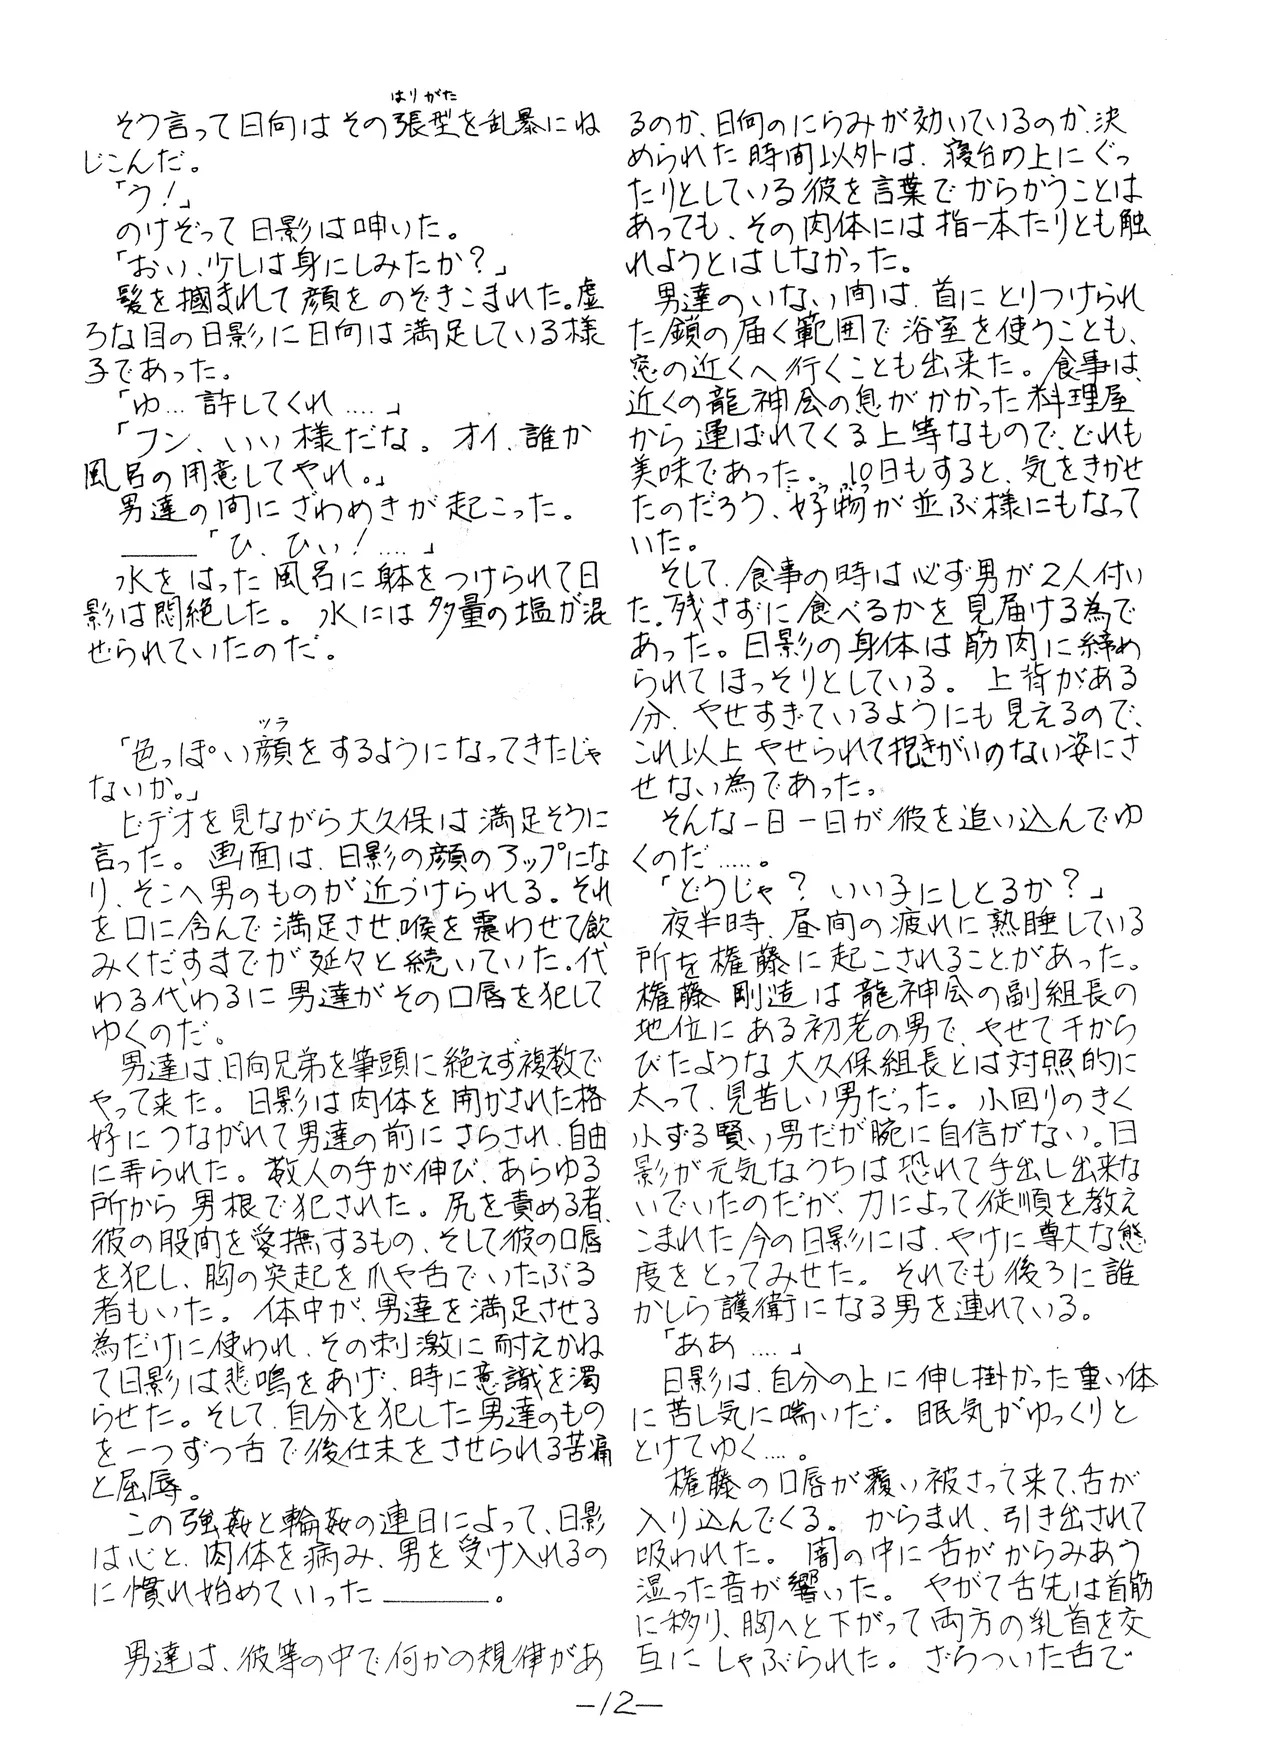 はりがた
そう言って日向はその張型を乱暴にね
じこんだ。
「う！」
のけぞって日影は呻いた。
「おい、少しは身にしみたか？」
髪を掴まれて顔をのぞきこまれた。虚
ろな目の日影に日向は満足している様
子であった。
「ゆ…許してくれ……」
「フン、いい様だな。オイ、誰か
風呂の用意してやれ。」
男達の間にざわめきが起こった。
――「ひ、ひい！……」
水をはった風呂に躰をつけられて日
影は悶絶した。水には多量の塩が混
ぜられていたのだ。
ツラ
「色っぽい顔をするようになってきたじゃ
ないか。」
ビデオを見ながら大久保は満足そうに
言った。画面は、日影の顔のアップにな
り、そこへ男のものが近づけられる。それ
を口に含んで満足させ、喉を震わせて飲
みくだすまでが延々と続いていた。代
わる代わるに男達がその口唇を犯して
ゆくのだ。
男達は、日向兄弟を筆頭に絶えず複数で
やって来た。日影は肉体を開かされた格
好につながれて男達の前にさらされ、自由
に弄られた。数人の手が伸び、あらゆる
所から男根で犯された。尻を責める者、
彼の股間を愛撫するもの、そして彼の口唇
を犯し、胸の突起を爪や舌でいたぶる
者もいた。体中が、男達を満足させる
為だけに使われ、その刺激に耐えかね
て日影は悲鳴をあげ、時に意識を濁
らせた。そして、自分を犯した男達のもの
を一つずつ舌で後仕末をさせられる苦痛
と屈辱。
この強姦と輪姦の連日によって、日影
は心と、肉体を病み、男を受け入れるの
に慣れ始めていった――。
男達は、彼等の中で何かの規律があ
るのか、日向のにらみが効いているのか、決
められた時間以外は、寝台の上にぐっ
たりとしている彼を言葉でからかうことは
あっても、その肉体には指一本たりとも触
れようとはしなかった。
男達のいない間は、首にとりつけられ
た鎖の届く範囲で浴室を使うことも、
窓の近くへ行くことも出来た。食事は、
近くの龍神会の息がかかった料理屋
から運ばれてくる上等なもので、どれも
美味であった。10日もすると、気をきかせ
たのだろう、好物が並ぶ様にもなって
いた。
そして、食事の時は必ず男が2人付い
た。残さずに食べるかを見届ける為で
あった。日影の身体は筋肉に締め
られてほっそりとしている。上背がある
分、やせすぎているようにも見えるので、
これ以上やせられて抱きがいのない姿にさ
せない為であった。
そんな一日一日が彼を追い込んでゆ
くのだ……。
「どうじゃ？ いい子にしとるか？」
夜半時、昼間の疲れに熟睡している
所を権藤に起こされることがあった。
権藤剛造は龍神会の副組長の
地位にある初老の男で、やせて干から
びたような大久保組長とは対照的に
太って、見苦しい男だった。小回りのきく
小ずる賢い男だが腕に自信がない。日
影が元気なうちは恐れて手出し出来な
いでいたのだが、力によって従順を教え
こまれた今の日影には、やけに尊大な態
度をとってみせた。それでも後ろに誰
かしら護衛になる男を連れている。
「ああ……」
日影は、自分の上に伸し掛かった重い体
に苦し気に喘いだ。眠気がゆっくりと
とけてゆく……。
権藤の口唇が覆い被さって来て、舌が
入り込んでくる。からまれ、引き出されて
吸われた。闇の中に舌がからみあう
湿った音が響いた。やがて舌先は首筋
に移り、胸へと下がって両方の乳首を交
互にしゃぶられた。ざらついた舌で
－12－